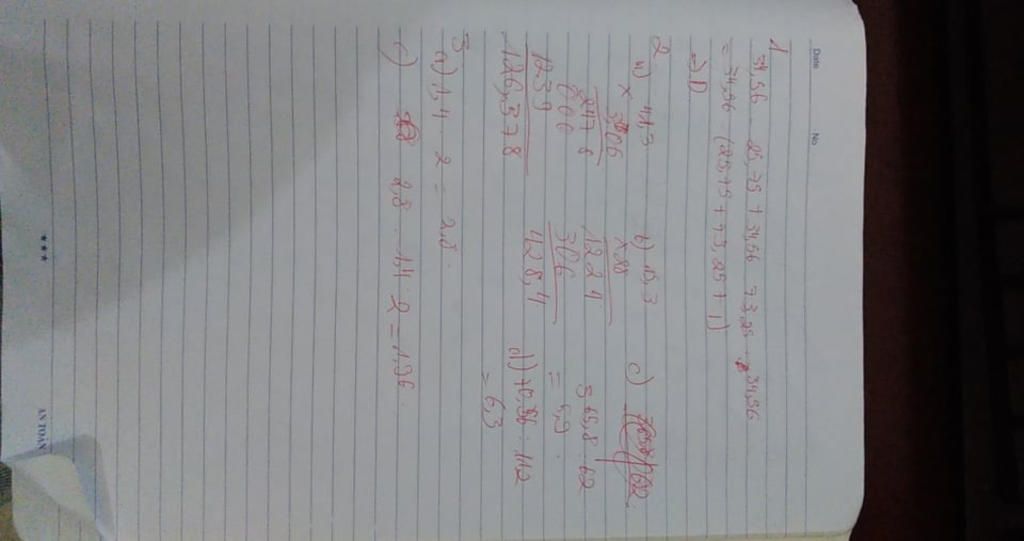 Date No
1
34,56 25,75 + 34,56 73,25 34,56
= 34,56 (25,75 + 73,25 + 1)
=> D
2
a) 41,3
x 306
2478
000
1239
126,378
b) 15,3
x 28
1224
306
428,4
c)
365,8 : 62
= 5,9
d) 70,56 : 11,2
= 6,3
3
a) 1,4 . 2 = 2,8.
c) 2,8 . 1,4 : 2 = 1,96.
*** AN TOÀN